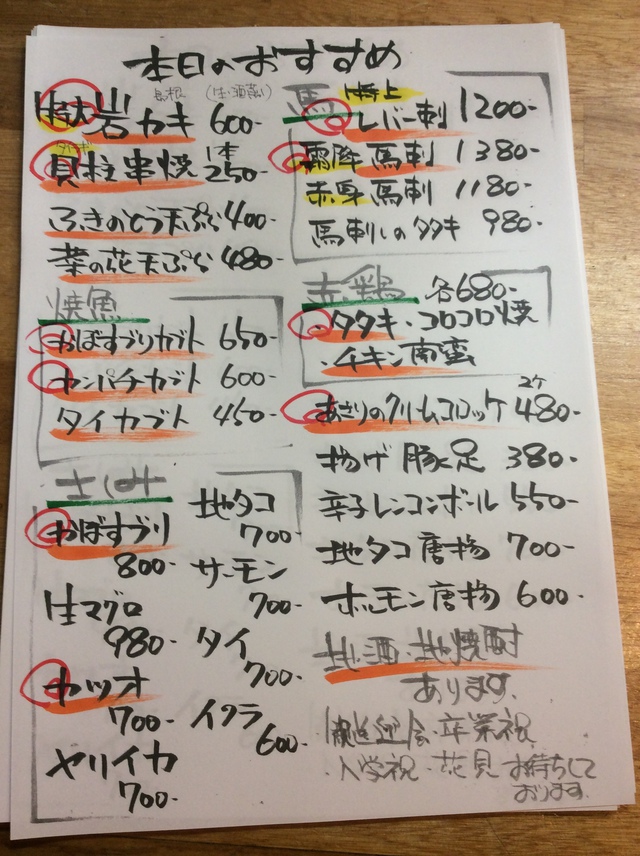 本日のおすすめ
島根 (生・酒蒸し)
特大岩カキ 600-
貝柱串焼 1本 250-
ふきのとう天ぷら 400-
菜の花天ぷら 480-
焼魚
かぼすブリカブト 650-
カンパチカブト 600-
タイカブト 450-
さしみ
かぼすブリ
800-
生マグロ
980-
カツオ
700-
ヤリイカ
700-
地タコ
700-
サーモン
700-
タイ
700-
イクラ
600-
馬
特上
レバー刺 1200-
霜降馬刺 1380-
赤身馬刺 1180-
馬刺しのタタキ 980-
赤鶏 各680-
・タタキ・コロコロ焼
・チキン南蛮
2ケ
あさりのクリームコロッケ 480-
揚げ豚足 380-
辛子レンコンボール 550-
地タコ唐揚 700-
ホルモン唐揚 600-
地酒・地焼酎
あります。
歓送迎会・卒業祝
・入学祝・花見 お待ちして
おります。